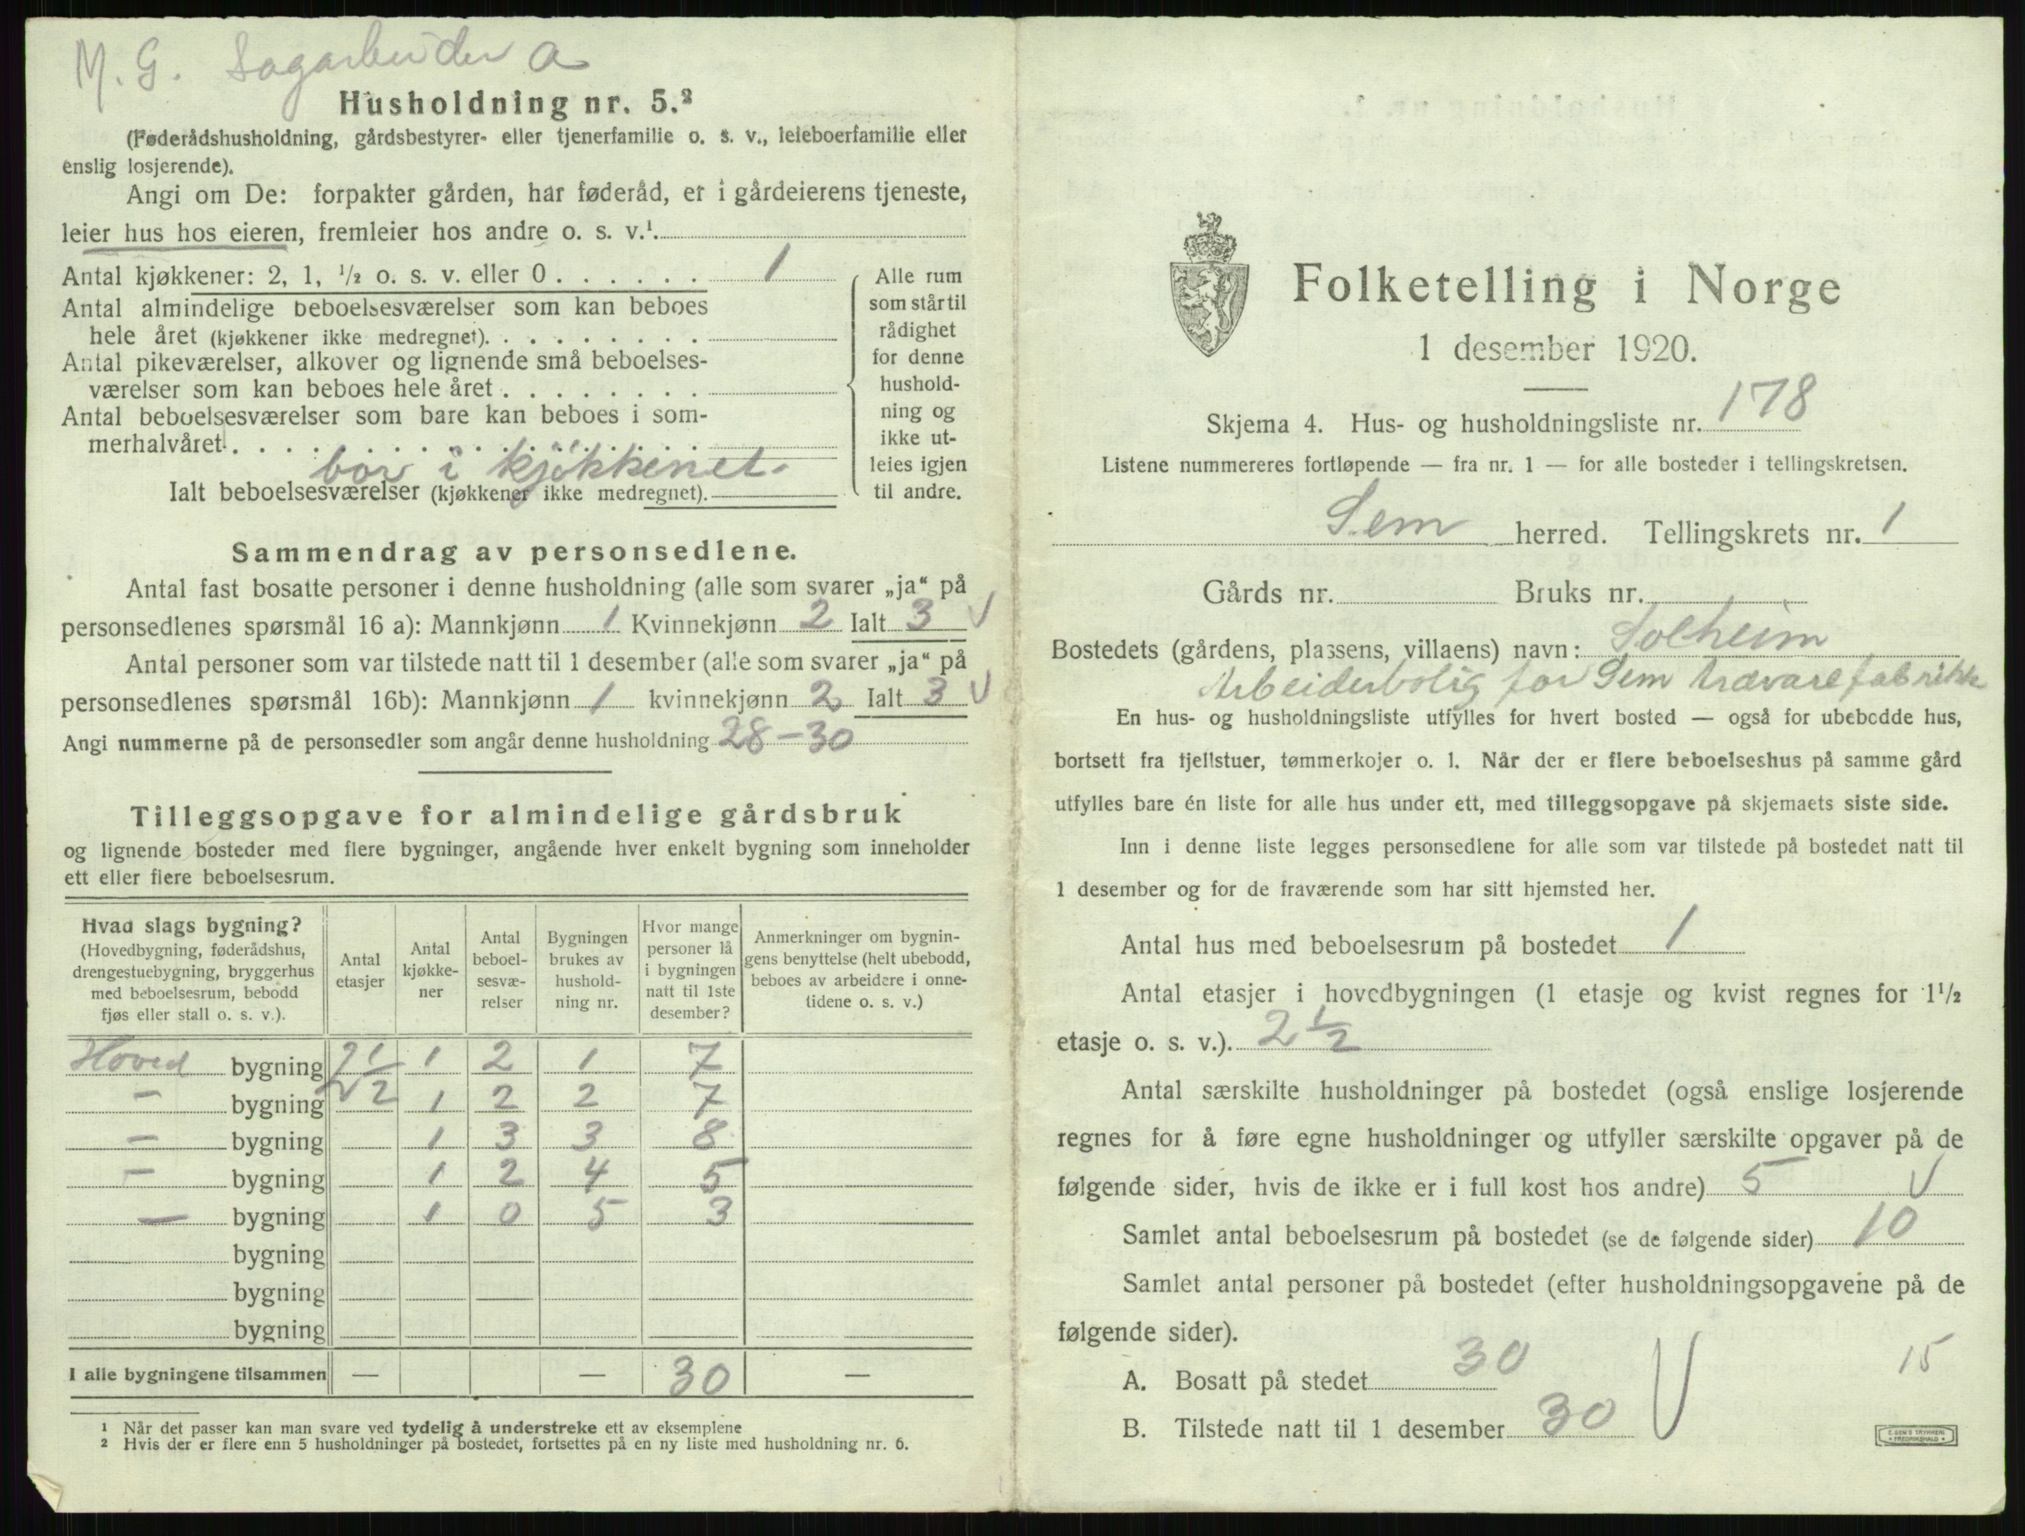 M. G. Sagarbeider a
Husholdning nr. 5.²
(Føderådshusholdning, gårdsbestyrer- eller tjenerfamilie o. s. v., leieboerfamilie eller
enslig losjerende).
Angi om De: forpakter gården, har føderåd, er i gårdeierens tjeneste,
leier hus hos eieren, fremleier hos andre o. s. v.¹
Antal kjøkkener: 2, 1, ½ o. s. v. eller 0 . . . . . . 1
Antal almindelige beboelsesværelser som kan beboes
hele året (kjøkkener ikke medregnet). . . . . . . . .
Antal pikeværelser, alkover og lignende små beboelses-
værelser som kan beboes hele året . . . . . . . .
Antal beboelsesværelser som bare kan beboes i som-
merhalvåret. . . . . . . . . . . . . . . .
bor i kjøkkenet
Ialt beboelsesværelser (kjøkkener ikke medregnet).
Alle rum
som står til
rådighet
for denne
hushold-
ning og
ikke ut-
leies igjen
til andre.
Sammendrag av personsedlene.
Antal fast bosatte personer i denne husholdning (alle som svarer „ja“ på
personsedlenes spørsmål 16 a): Mannkjønn 1 Kvinnekjønn 2 Ialt 3 V
Antal personer som var tilstede natt til 1 desember (alle som svarer „ja“ på
personsedlenes spørsmål 16b): Mannkjønn 1 kvinnekjønn 2 Ialt 3 V
Angi nummerne på de personsedler som angår denne husholdning 28-30
Tilleggsopgave for almindelige gårdsbruk
og lignende bosteder med flere bygninger, angående hver enkelt bygning som inneholder
ett eller flere beboelsesrum.
Hvad slags bygning?
(Hovedbygning, føderådshus,
drengestuebygning, bryggerhus
med beboelsesrum, bebodd
fjøs eller stall o. s. v.).
Antal
etasjer
Antal
kjøkke-
ner
Antal
beboel-
sesvæ-
relser
Bygningen
brukes av
hushold-
ning nr.
Hvor mange
personer lå
i bygningen
natt til 1ste
desember?
Anmerkninger om bygnin-
gens benyttelse (helt ubebodd,
beboes av arbeidere i onne-
tidene o. s. v.)
Hoved bygning 2½ 1 2 1 7
— bygning 1 2 2 7
— bygning 1 3 3 8
— bygning 1 2 4 5
— bygning 1 0 5 3
bygning
bygning
bygning
I alle bygningene tilsammen — — 30 —
¹ Når det passer kan man svare ved tydelig å understreke ett av eksemplene
² Hvis der er flere enn 5 husholdninger på bostedet, fortsettes på en ny liste med husholdning nr. 6.
Folketelling i Norge
1 desember 1920.
Skjema 4. Hus- og husholdningsliste nr. 178
Listene nummereres fortløpende — fra nr. 1 — for alle bosteder i tellingskretsen.
Sem herred. Tellingskrets nr. 1
Gårds nr. Bruks nr.
Bostedets (gårdens, plassens, villaens) navn: Solheim
Arbeiderbolig for Sem trævarefabrikk
En hus- og husholdningsliste utfylles for hvert bosted — også for ubebodde hus,
bortsett fra fjellstuer, tømmerkojer o. l. Når der er flere beboelseshus på samme gård
utfylles bare én liste for alle hus under ett, med tilleggsopgave på skjemaets siste side.
Inn i denne liste legges personsedlene for alle som var tilstede på bostedet natt til
1 desember og for de fraværende som har sitt hjemsted her.
Antal hus med beboelsesrum på bostedet 1
Antal etasjer i hovedbygningen (1 etasje og kvist regnes for 1½
etasje o. s. v.). 2½
Antal særskilte husholdninger på bostedet (også enslige losjerende
regnes for å føre egne husholdninger og utfyller særskilte opgaver på de
følgende sider, hvis de ikke er i full kost hos andre) 5 V
Samlet antal beboelsesrum på bostedet (se de følgende sider) 10
Samlet antal personer på bostedet (efter husholdningsopgavene på de
følgende sider).
A. Bosatt på stedet 30 15
B. Tilstede natt til 1 desember 30 V
E. SEM'S TRYKKERI
FREDRIKSHALD